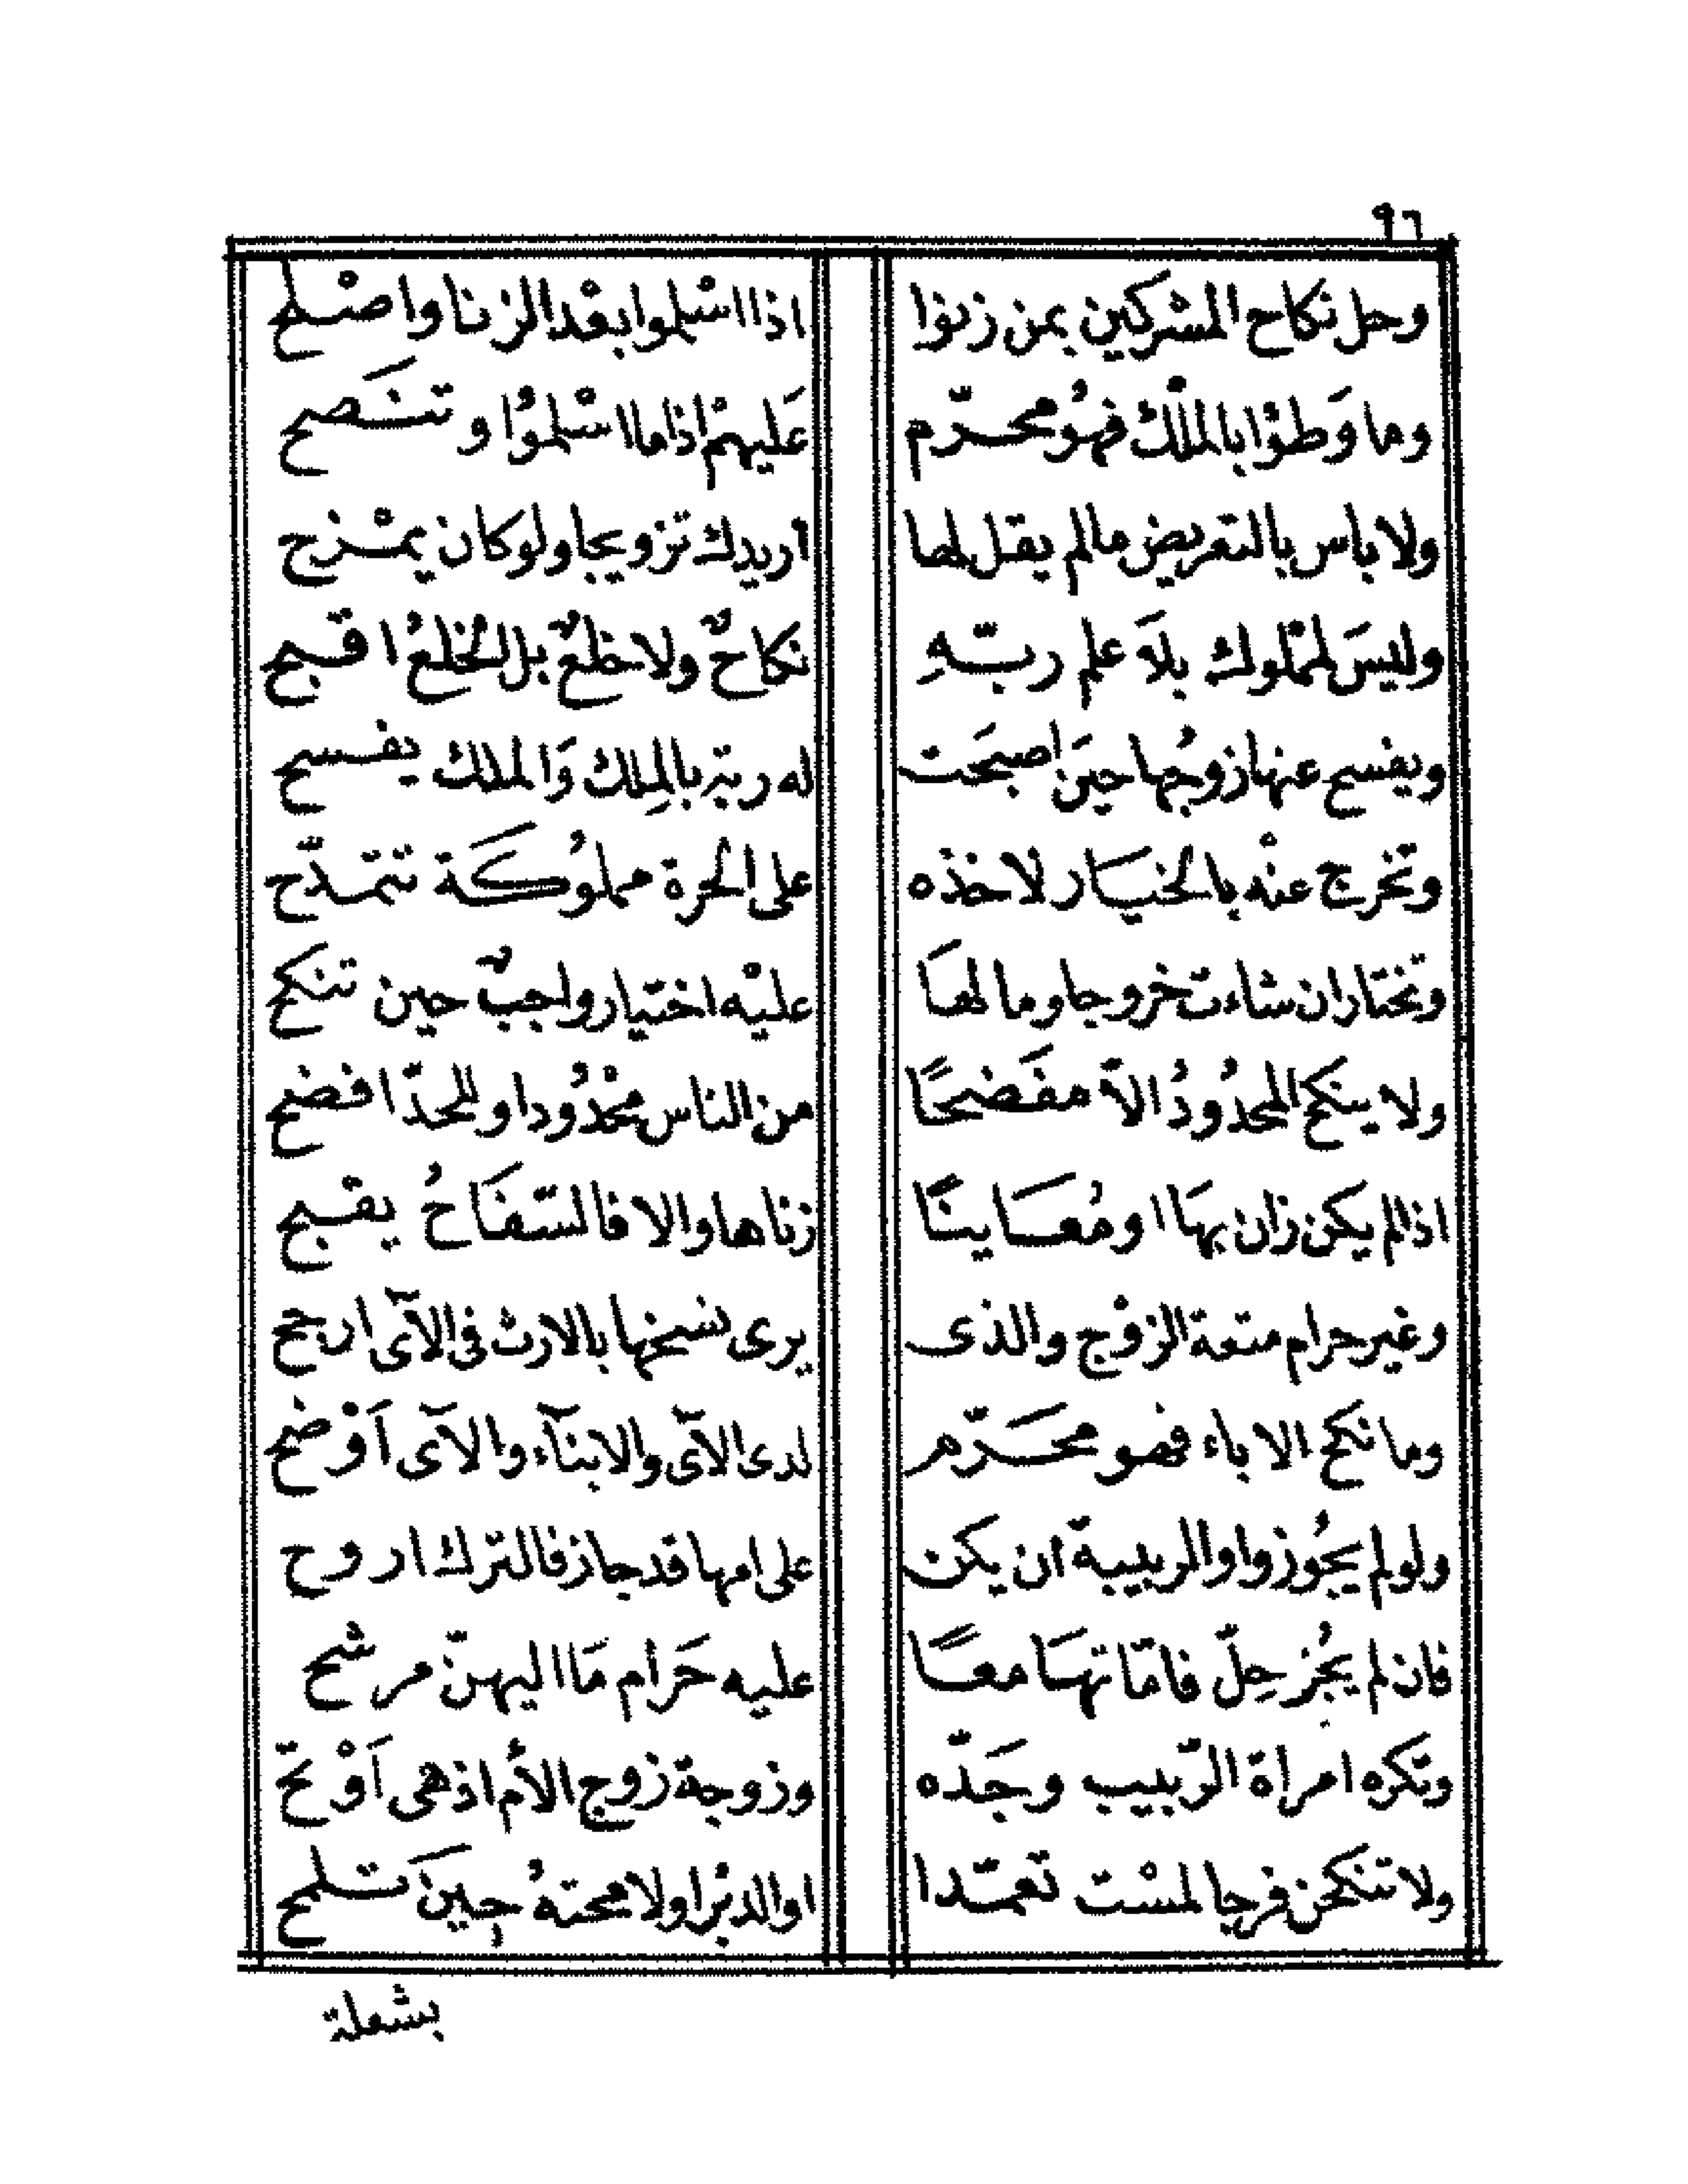 ٩٦
وحل نكاح المشركين بمن زنوا اذا اسْلموا بعْد الزنا واصْلح
وما وَطؤْا بالملْك فهوُ محرّم عَليهمْ اذا ما اسْلموُا وتنصح
ولا باس بالتعريض مالم يقل لها اريدك تزويجا ولو كان يمْزح
وليسَ لممْلوك بلاَ علم ربّهِ نكاحٌ ولا خلعٌ بل الخلعُ اقبح
ويفسح عنها زوجُها حينَ اصبحَت له ربة بالمِلك وَالملك يفسح
وتخرج عنْه بالخيَار لاخذه على الحرة مملوُكَة تتمدّح
وتختار ان شاءت خروجا وما لهَا عليْه اختيار واجبٌ حين تنكح
ولا ينكح المحدُودُ الاّ مفَضحًا من الناس محْدُودا وللحدّ افضح
اذا لم يكن زان بهَا او مُعَاينًا زناها والا فالسّفَاحُ يقبح
وغير حرام متعة الزوْج والذى يرى نسخها بالارث فى الآى ارجح
وما نكح الاباء فهو محَرّم لدى الآى والابنآء والآى اَوْضح
ولو لم يجُوزوا والربيبة ان يكن على امها قد جاز فالترك اروح
فان لم يجُز حِلّ فامّاتهَا معًا عليه حَرام مَا اليهنّ مرشح
وتكره امراة الرّبيب وجَدّه وزوجة زوج الأم اذ هى اَوْتحّ
ولا تنكحن فرجا لمسْت تعمّدا او الدبْر اولا محتهُ حِينَ تلمح
بشعلة